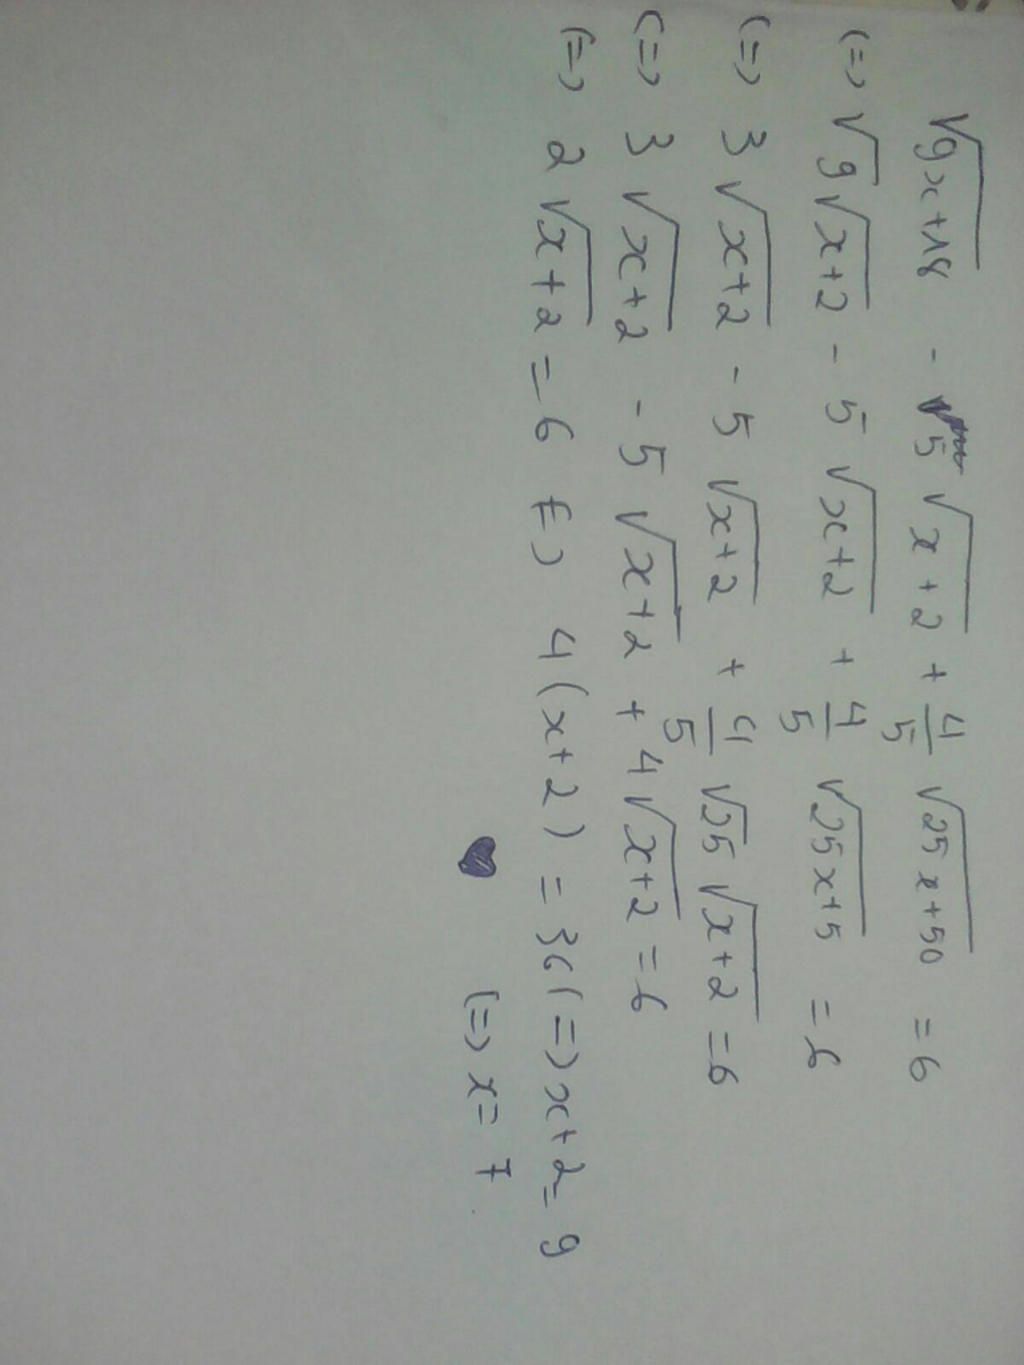 √(9x+18) - 5√(x+2) + 4/5 √(25x+50) = 6
(=) √9 √(x+2) - 5√(x+2) + 4/5 √(25x+5) = 6
(=) 3√(x+2) - 5√(x+2) + 4/5 √25 √(x+2) = 6
(=) 3√(x+2) - 5√(x+2) + 4√(x+2) = 6
(=) 2√(x+2) = 6 (=) 4(x+2) = 36 (=) x+2 = 9
(=) x = 7